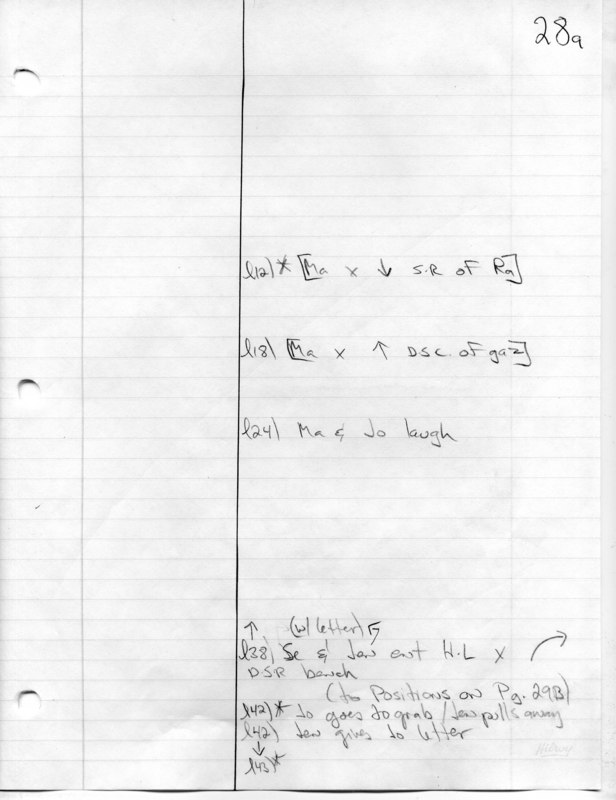 28a
l12)* [Ma x ↓ S.R of Ra]
l18) [Ma x ↑ D.S.C. of gaz]
l24) Ma & Jo laugh
↑ (w/ letter)
l38) Se & Jew ent H.L x
D.S.R bench
(to Positions on Pg. 29B)
l42)* Jo goes to grab / Jew pulls away
l42) Jew gives Jo letter
↓
l43)*